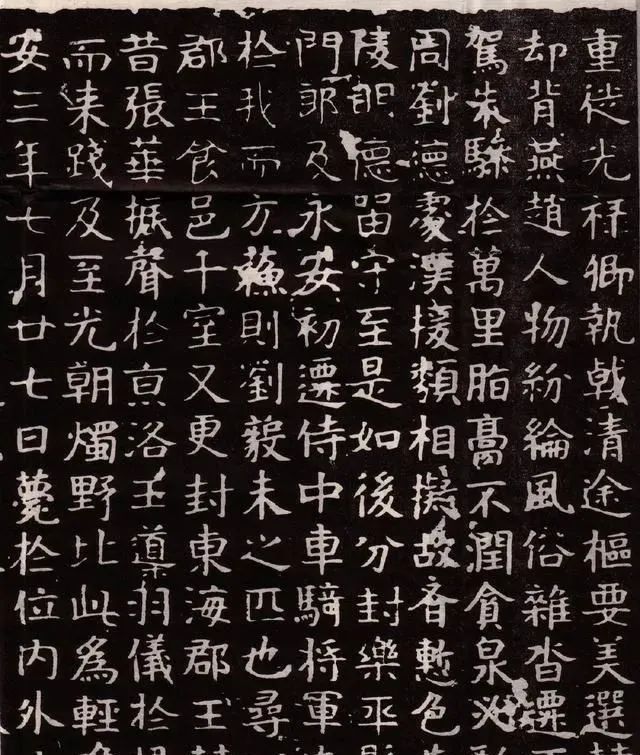 重徙光祿卿執戟清途樞要美選
却背燕趙人物紛綸風俗雜沓
駕朱驂於萬里脂膏不潤貪泉
周劉德處漢援類相擬故吝慙色
陵明德留守至是如後分封樂平
門郎及永安初遷侍中車騎將軍
於我而方蘓則劉毅未之匹也尋
郡王食邑千室又更封東海郡王
昔張華振聲於京洛王導羽儀於
而来踐及至光朝燭野比此為輕
安三年七月廿七日薨於位內外